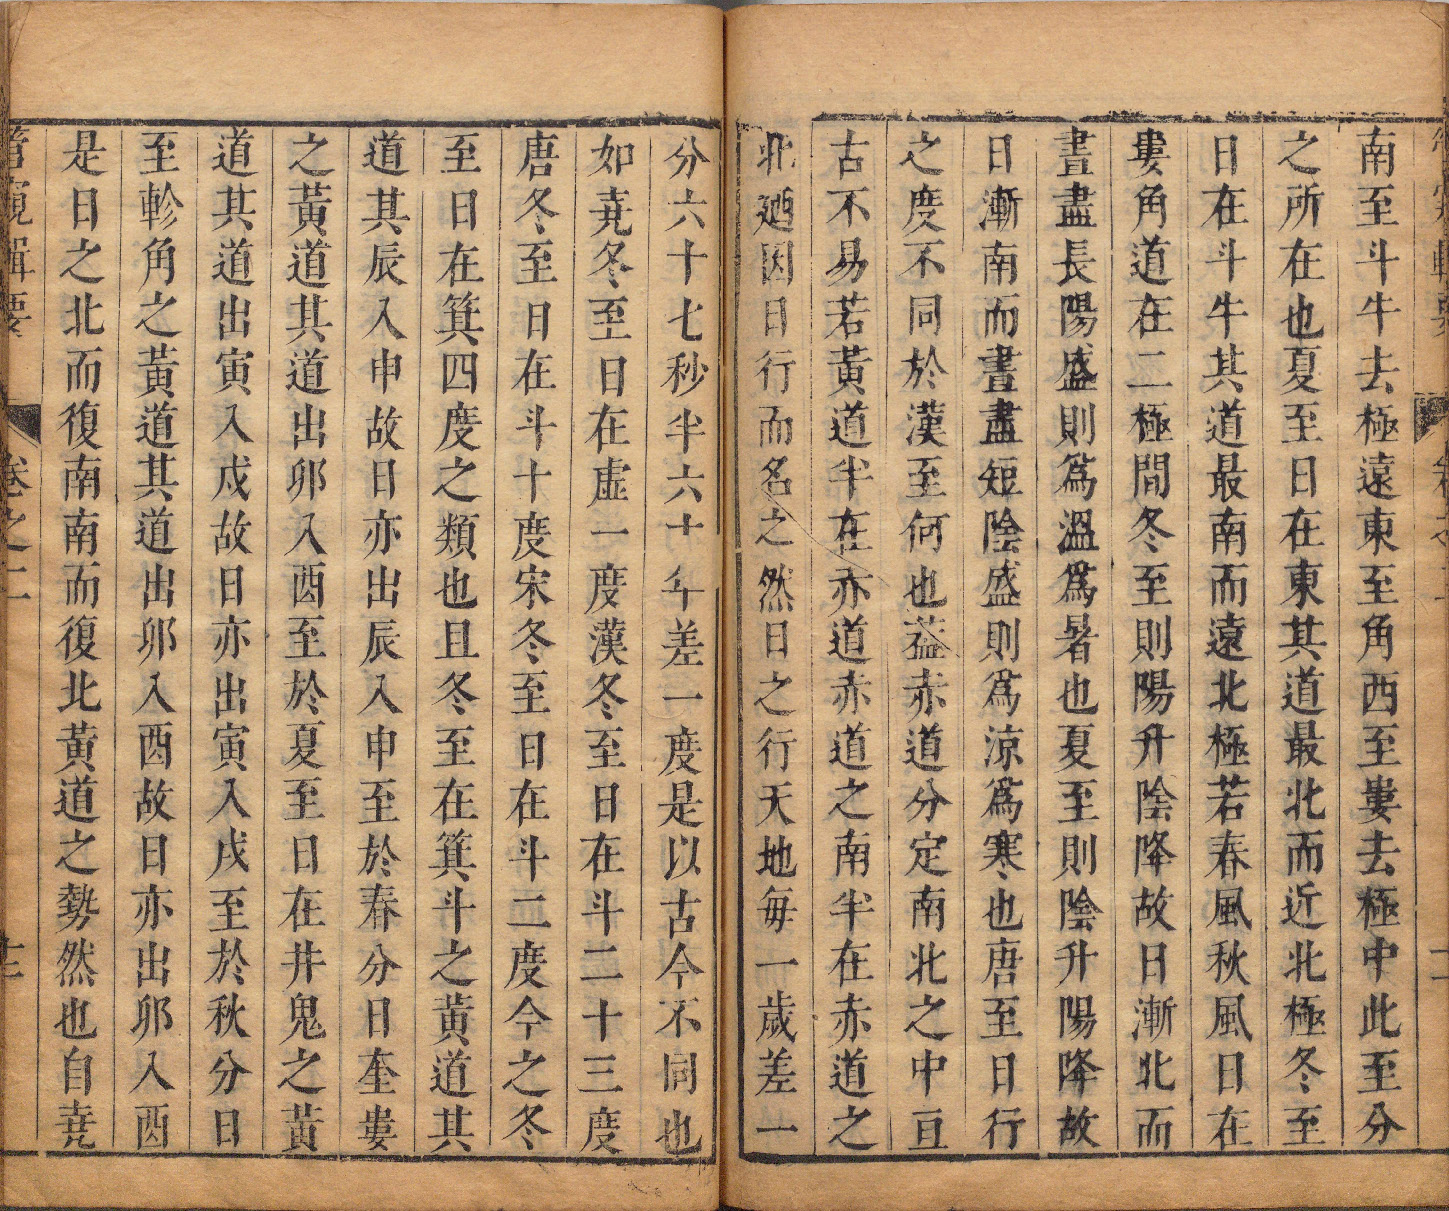 南至斗牛去極遠東至角西至婁去極中此至分
之所在也夏至日在東其道最北而近北極冬至
日在斗牛其道最南而遠北極若春風秋風日在
婁角道在二極間冬至則陽升陰降故日漸北而
晝晝長陽盛則爲溫爲暑也夏至則陰升陽降故
日漸南而晝晝短陰盛則爲涼爲寒也唐至日行
之度不同於漢至何也葢赤道分定南北之中亘
古不易若黃道半在亦道赤道之南半在赤道之
北廼因日行而名之然日之行天地每一歲差一
分六十七秒半六十年差一度是以古今不同也
如堯冬至日在虛一度漢冬至日在斗二十三度
唐冬至日在斗十度宋冬至日在斗二度今之冬
至日在箕四度之類也且冬至在箕斗之黃道其
道其辰入申故日亦出辰入申至於春分日奎婁
之黃道其道出卯入酉至於夏至日在井鬼之黃
道其道出寅入戌故日亦出寅入戌至於秋分日
至軫角之黃道其道出卯入酉故日亦出卯入酉
是日之北而復南南而復北黃道之勢然也自堯
管窺輯要 卷之二 十二